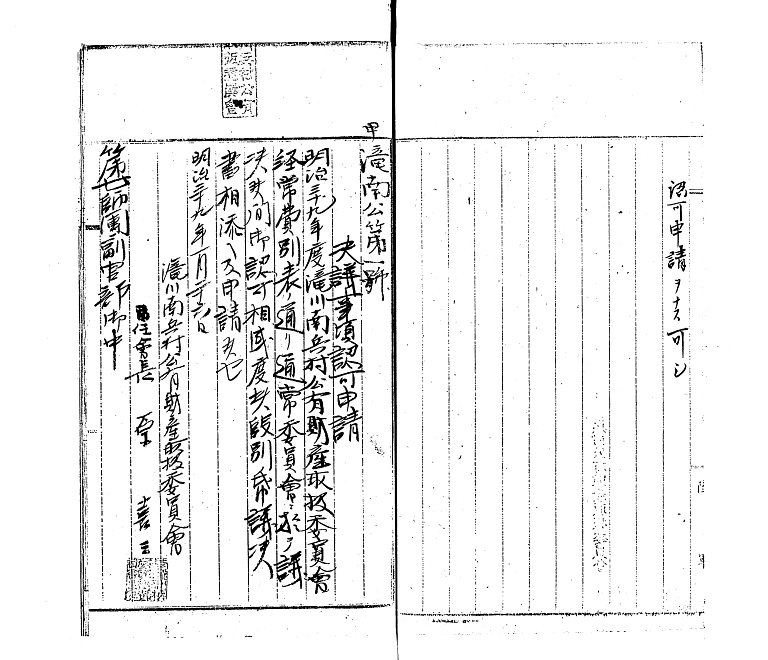 認可申請ヲナス可シ
甲
滝南公第一號
決議事項認可申請
明治三十九年度滝川南兵村公有財産取扱委員會
経常費別表ノ通リ通常委員會ニ於テ議
決候間御認可相成度此段別紙議決
書相添ヘ及申請候也
明治三十九年一月二十六日
滝川南兵村公有財産取扱委員會
會長
第七師團副官部御中